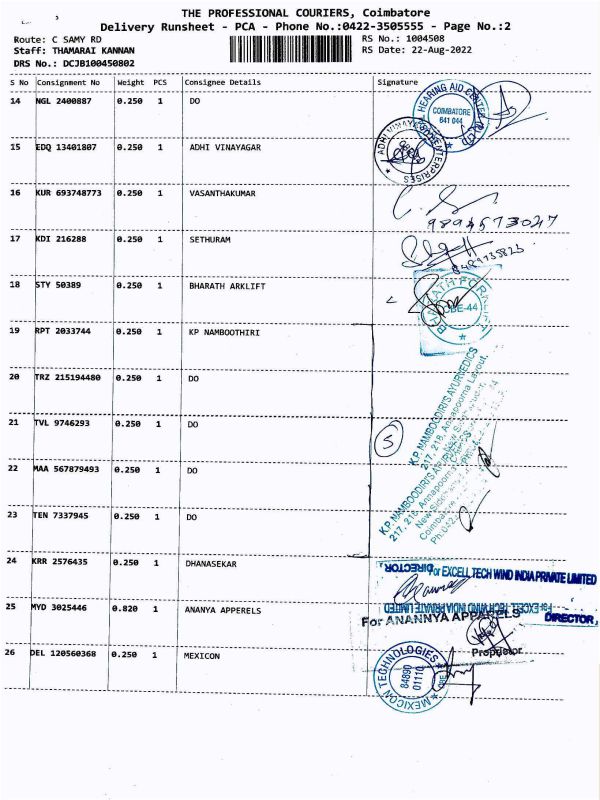 THE PROFESSIONAL COURIERS, Coimbatore
Delivery Runsheet - PCA - Phone No.:0422-3505555 - Page No.:2
Route: C SAMY RD RS No.: 1004508
Staff: THAMARAI KANNAN RS Date: 22-Aug-2022
DRS No.: DCJB100450802
S No Consignment No Weight PCS Consignee Details Signature
14 NGL 2400887 0.250 1 DO
HEARING AID CENTRE COIMBATORE 641 044
15 EDQ 13401807 0.250 1 ADHI VINAYAGAR
ADHI VINAYAGAR ENTERPRISES
16 KUR 693748773 0.250 1 VASANTHAKUMAR
17 KDI 216288 0.250 1 SETHURAM
18 STY 50389 0.250 1 BHARATH ARKLIFT
CBE-44
19 RPT 2033744 0.250 1 KP NAMBOOTHIRI
20 TRZ 215194480 0.250 1 DO
K.P. NAMBOODIRI'S AYURVEDICS
217, 218, Annapoorna Layout,
21 TVL 9746293 0.250 1 DO
5
22 MAA 567879493 0.250 1 DO
23 TEN 7337945 0.250 1 DO
24 KRR 2576435 0.250 1 DHANASEKAR
For EXCELL TECH WIND INDIA PRIVATE LIMITED
DIRECTOR
25 MYD 3025446 0.820 1 ANANYA APPERELS
For EXCELL TECH WIND INDIA PRIVATE LIMITED
DIRECTOR
For ANANNYA APPARELS
Proprietor
26 DEL 120560368 0.250 1 MEXICON
MEXICON TECHNOLOGIES
84890
01110
CBE